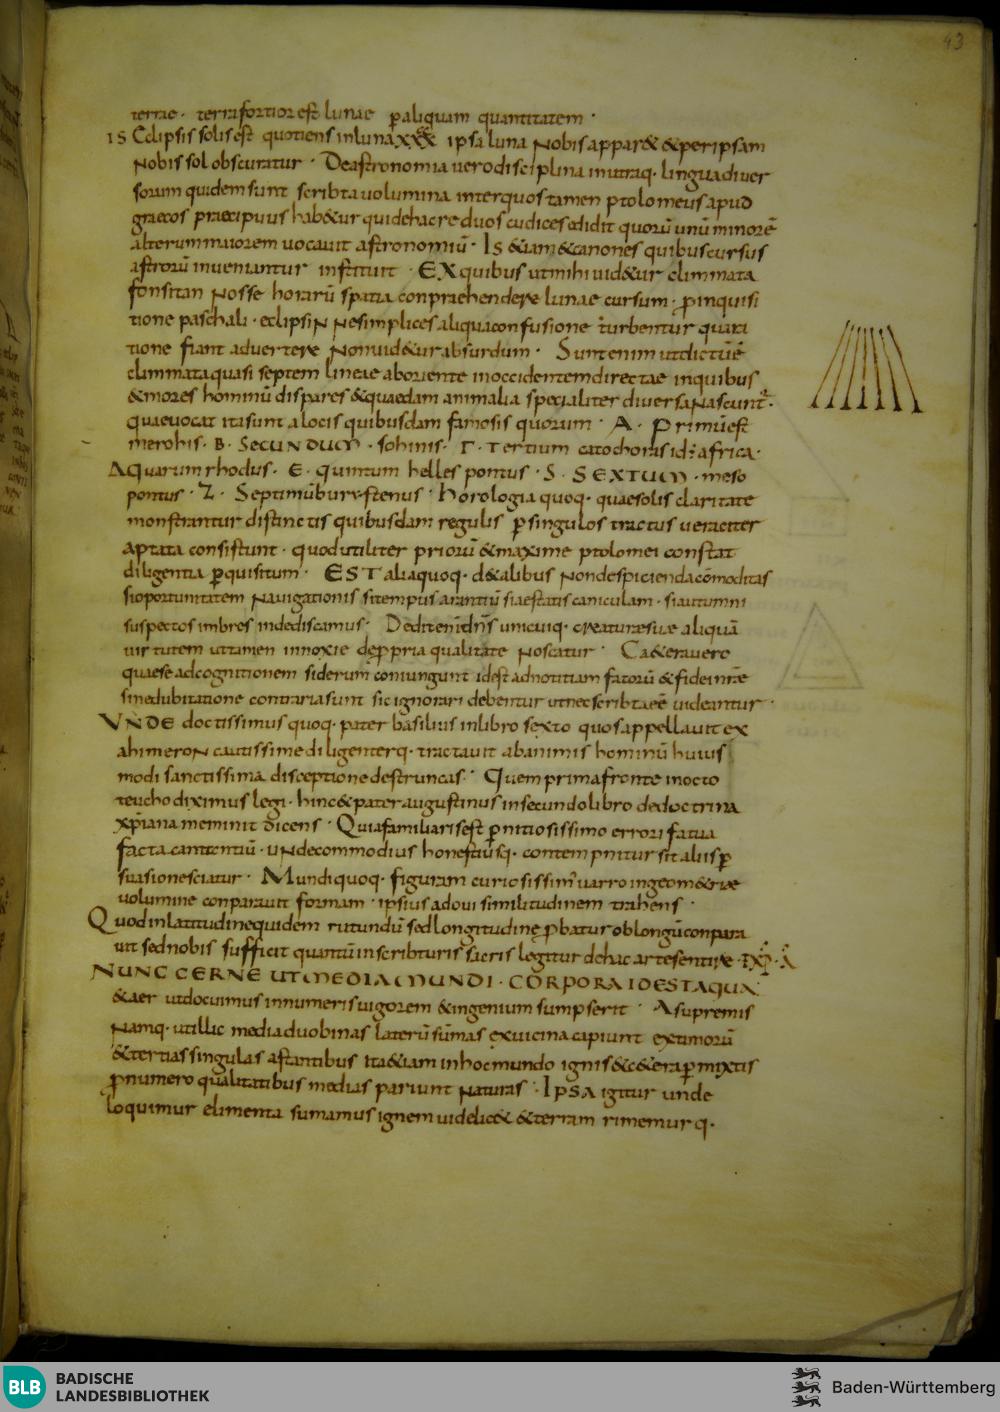 43
terrae · terra fortior est lunae p aliquam quantitatem ·
IS Eclipsis solis est quotiens inluna xxx ipsa luna Nobis appar& &peripsam
Nobis sol obscuratur · De astronomia uero disciplina inutraq· lingua diuer
sorum quidem sunt scribta uolumina interquos tamen ptolomeus apud
graecos praecipuus hab&ur qui dehac re duos cudices edidit quorū unū minorē
alterum maiorem uocauit astronomiū · Is &iam &canones quibus cursus
astrorū inueniantur instituit · EX quibus utmihi uid&ur climmata
forsitan Nosse horarū spatia conpraehendere lunae cursum · p inquisi
tione paschali · eclipsiN Nesimplices aliqua confusione turbentur quara
tione fiant aduertere Nonuid&ur absurdum · Sunt enim utdictū ē
climmata quasi septem lineae aboriente inoccidentem directae inquibus
&mores hominū dispares &quaedam animalia specialiter diuersa Nascunt·
quae uocat ita sunt a locis quibusdam famosis quorum · A · Primū est
merohis · B · SECUNDUM · sohinis · Γ · Tertium catochoras id· africa ·
Aquarum rhodus · E · quintum helles pontus · S · SEXTUM · meso
pontus · Z · Septimū burystenus · horologia quoq· quae solis claritate
monstrantur distinctis quibusdam regulis p singulos tractus ueraciter
aptata consistunt · quod utiliter priorū &maxime ptolomei constat
diligentia pquisitum · EST alia quoq· d&alibus Nondespicienda cōmoditas
si oportunitatem Nauigationis si tempus arantiū si aestatis caniculam · si autumni
suspectos imbres indediscamus · Dedit enī dn̄s unicuiq· creaturae suae aliquā
uirtutem uttamen innoxie de p pria qualitate Noscatur · Ca&era uero
quae se adcognitionem siderum coniungunt idest ad notitiam fatorū &fidei nr̄ae
sine dubitatione contraria sunt sic ignorari debentur utnec scribta ēē uideantur ·
VNDE doctissimus quoq· pater basilius inlibro sexto quos appellauit ex
ahimeroN cautissime diligenterq· tractauit abanimis hominū huius
modi sanctissima disceptione destruncas · Quem prima fronte inocto
teucho diximus legi · hinc &pater augustinus insecundo libro dedoctrina
xp̄iana meminit dicens · Quia familiaris est p nitiosissimo errori fatua
facta cantantiū · uNde commodius honestiusq· contempnitur sit aliis p
suasione sciatur · Mundi quoq· figuram curiosissim' uarro ingeom&riae
uolumine conparauit formam · ipsius adoui similitudinem trahens ·
Quod inlatitudine quidem rutundū sed longitudine pbatur oblongū conpara
uit sed nobis sufficit quantū inscribturis sacris legitur dehac arte sentire · IXP · A
NUNC CERNE UT MEDIA MUNDI · CORPORA IDEST AQUA
&aer utdocuimus innumeris uigorem &ingenium sumpserit · A supremis
Namq· utillic media duobinas laterū sūmas exuicina capiunt extimorū
&tertias singulas astantibus ita &iam inhoc mundo ignis &c&era p mixtis
pnumero qualitatibus medias pariunt Naturas · IPSA igitur unde
loquimur elimenta sumamus ignem uidelic& &terram rimemurq·
BLB BADISCHE
LANDESBIBLIOTHEK
Baden-Württemberg